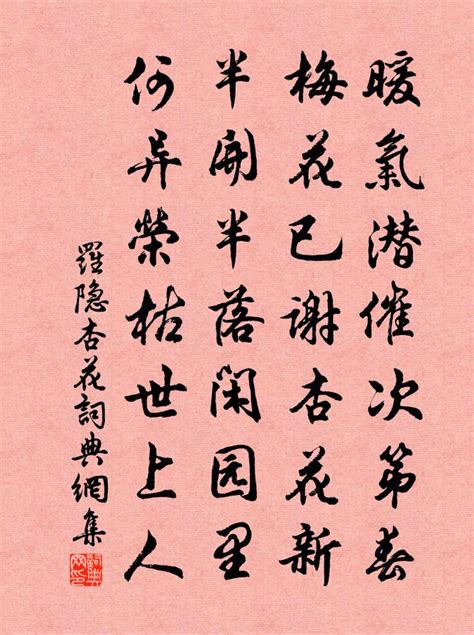 暖氣潜催次第春
梅花已谢杏花新
半開半落闲园里
何异榮枯世上人
羅隐杏花詞典網集